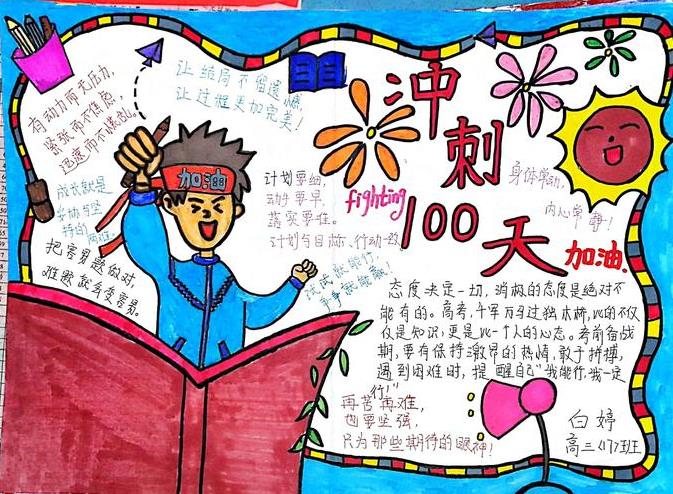 有动力而无压力,
紧张而不焦虑,
迅速而不慌乱。
让结局不留遗憾
让过程更加完美!
冲刺
100天
加油.
fighting
加油
计划要细,
动手要早,
落实要准。
计划与目标,行动一致
身体常动,
内心常静!
成长就是
持的两难。
把容易题做对,
难题就会变容易。
试试就能行,
争争就能赢!
态度决定一切,消极的态度是绝对不
能有的。高考,千军万马过独木桥,比的不仅
仅是知识,更是比一个人的心态。考前备战
期,要有保持激昂的热情,敢于拼搏,
遇到困难时,提醒自己"我能行,我一定
行!"
再苦再难,
也要坚强,
只为那些期待的眼神!
白婷
高三(17)班